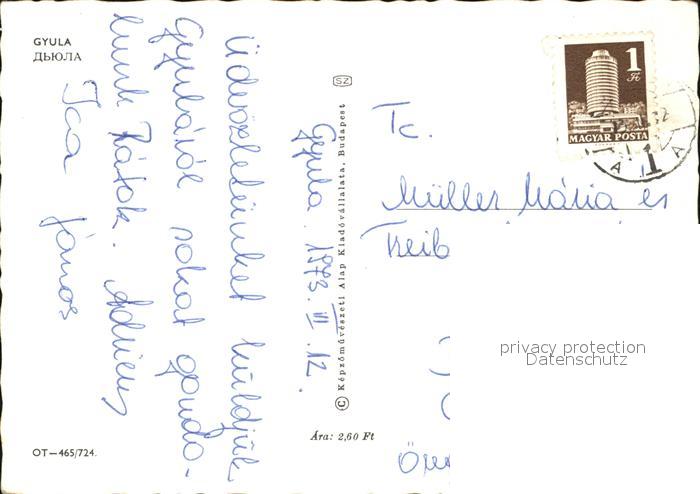 GYULA
ДЬЮЛА
Gyula. 1973. III. 12.
Üdvözletünket küldjük
Gyuláról sokat gondo-
lunk Rátok.
Ica János
OT—465/724.
SZ
© Képzőművészeti Alap Kiadóvállalata, Budapest
Ára: 2,60 Ft
1 Ft
MAGYAR POSTA
Tc.
Müller Mária és
Treib
privacy protection
Datenschutz